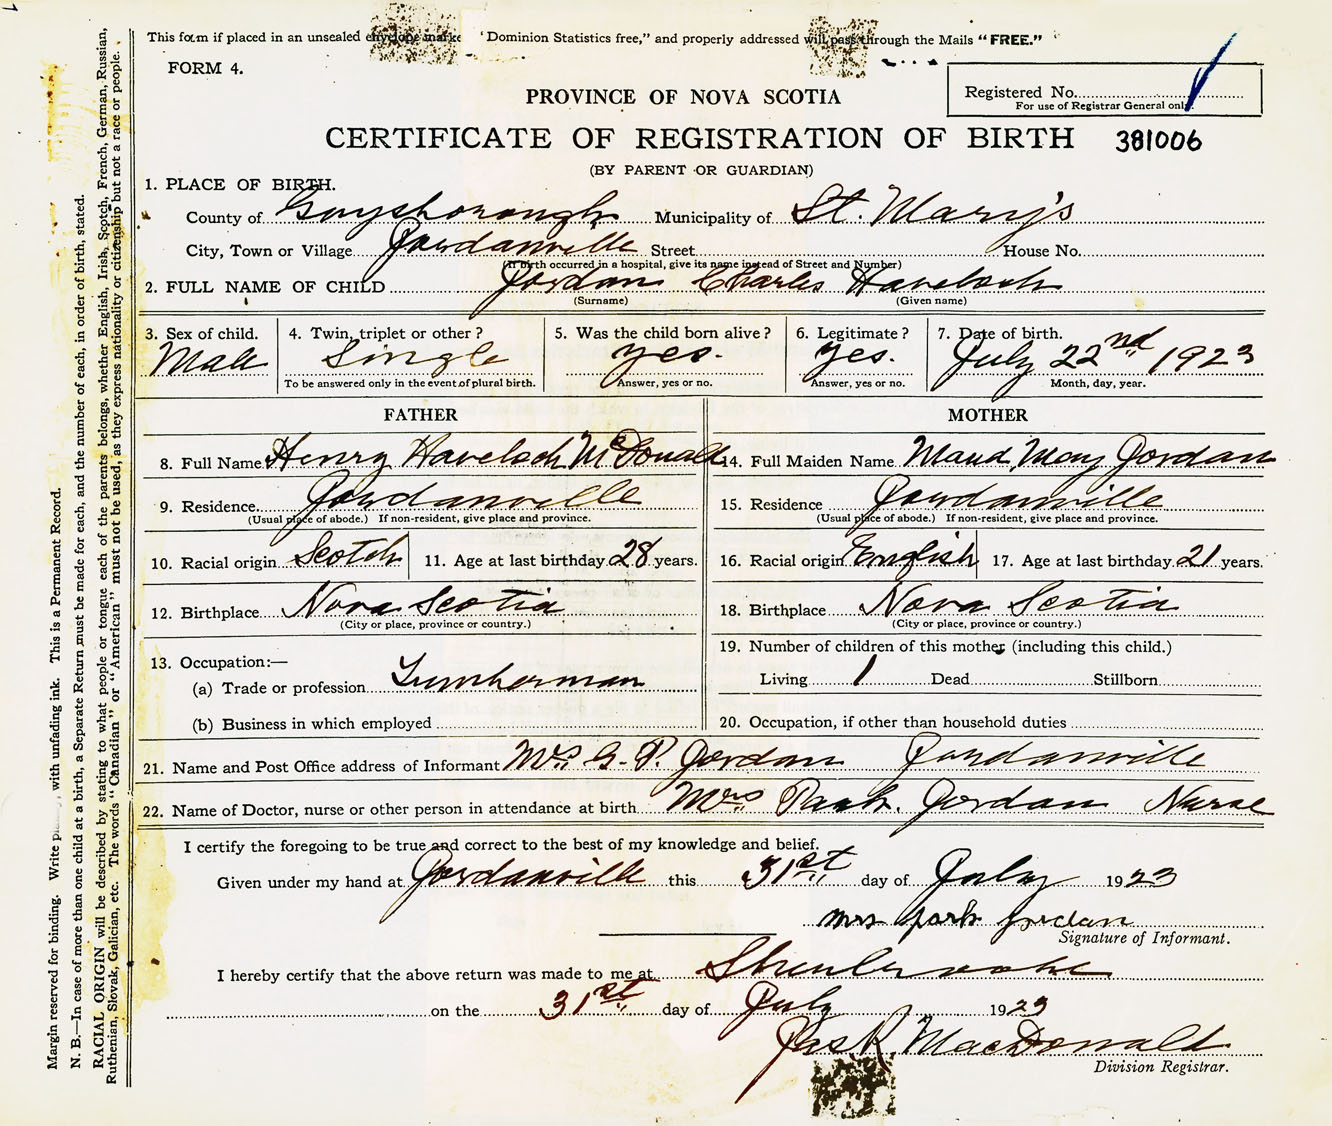 This form if placed in an unsealed envelope marked "Dominion Statistics free," and properly addressed will pass through the Mails "FREE."
FORM 4.
Registered No.
For use of Registrar General only.
PROVINCE OF NOVA SCOTIA
CERTIFICATE OF REGISTRATION OF BIRTH 381006
(BY PARENT OR GUARDIAN)
1. PLACE OF BIRTH.
County of Guysborough Municipality of St. Mary's
City, Town or Village Jordanville Street House No.
(If birth occurred in a hospital, give its name instead of Street and Number)
2. FULL NAME OF CHILD Jordan Charles Havelock
(Surname) (Given name)
3. Sex of child. 4. Twin, triplet or other? 5. Was the child born alive? 6. Legitimate? 7. Date of birth.
Male Single yes. yes. July 22nd 1923
To be answered only in the event of plural birth. Answer, yes or no. Answer, yes or no. Month, day, year.
FATHER
8. Full Name Henry Havelock McDonald
9. Residence Jordanville
(Usual place of abode.) If non-resident, give place and province.
10. Racial origin Scotch 11. Age at last birthday 28 years.
12. Birthplace Nova Scotia
(City or place, province or country.)
13. Occupation:—
(a) Trade or profession Lumberman
(b) Business in which employed
MOTHER
14. Full Maiden Name Maud May Jordan
15. Residence Jordanville
(Usual place of abode.) If non-resident, give place and province.
16. Racial origin English 17. Age at last birthday 21 years.
18. Birthplace Nova Scotia
(City or place, province or country.)
19. Number of children of this mother (including this child.)
Living 1 Dead Stillborn
20. Occupation, if other than household duties
21. Name and Post Office address of Informant Mrs G. P. Jordan Jordanville
22. Name of Doctor, nurse or other person in attendance at birth Mrs Park Jordan Nurse
I certify the foregoing to be true and correct to the best of my knowledge and belief.
Given under my hand at Jordanville this 31st day of July 1923
mrs park jordan
Signature of Informant.
I hereby certify that the above return was made to me at Sherbrooke
on the 31st day of July 1923
Jas R. MacDonald
Division Registrar.
Margin reserved for binding. Write with unfading ink. This is a Permanent Record.
N. B.—In case of more than one child at a birth, a Separate Return must be made for each, and the number of each, in order of birth, stated.
RACIAL ORIGIN will be described by stating to what people or tongue each of the parents belongs, whether English, Irish, Scotch, French, German, Russian,
Ruthenian, Slovak, Galician, etc. The words "Canadian" or "American" must not be used, as they express nationality or citizenship but not a race or people.